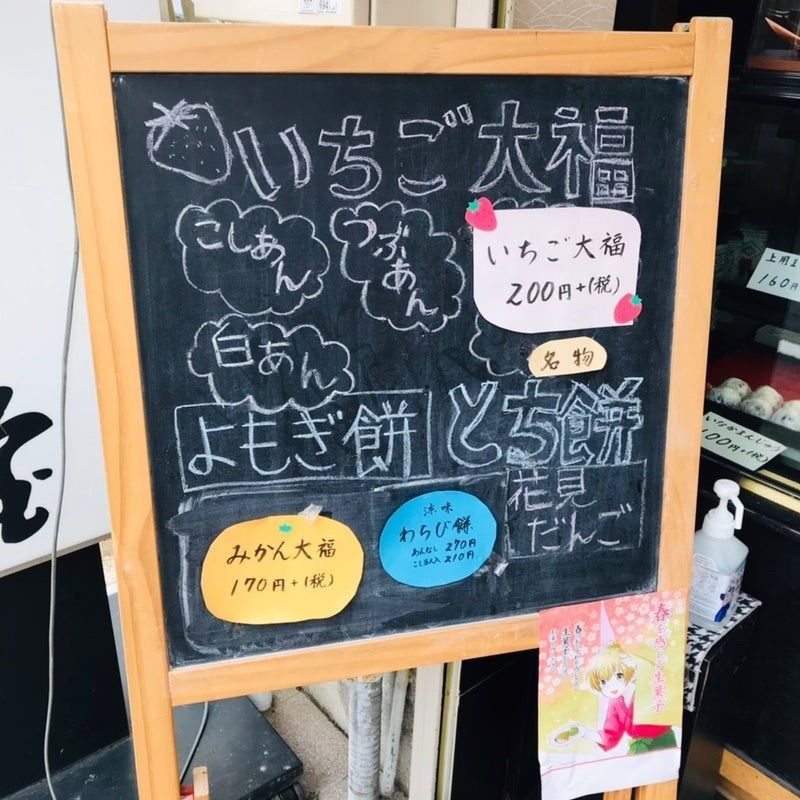 いちご大福
こしあん
つぶあん
いちご大福
200円+(税)
白あん
名物
よもぎ餅
とち餅
花見
だんご
みかん大福
170円+(税)
涼味
わらび餅
あんなし 270円
こしあん入 210円
春を感じる生菓子
上用ま
160円
いなかまんじゅう
100円+(税)